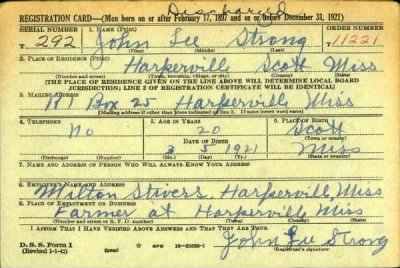 Discharged
REGISTRATION CARD—(Men born on or after February 17, 1897 and on or before December 31, 1921)
SERIAL NUMBER 1. NAME (Print) ORDER NUMBER
T 292 John Lee Strong T11221
(First) (Middle) (Last)
2. PLACE OF RESIDENCE (Print)
Harperville Scott Miss
(Number and street) (Town, township, village, or city) (County) (State)
[THE PLACE OF RESIDENCE GIVEN ON THE LINE ABOVE WILL DETERMINE LOCAL BOARD
JURISDICTION; LINE 2 OF REGISTRATION CERTIFICATE WILL BE IDENTICAL]
3. MAILING ADDRESS
R 1 Box 25 Harperville, Miss
[Mailing address if other than place indicated on line 2. If same insert word same]
4. TELEPHONE 5. AGE IN YEARS 6. PLACE OF BIRTH
No 20 Scott
DATE OF BIRTH (Town or county)
3 5 1921 Miss
(Exchange) (Number) (Mo.) (Day) (Yr.) (State or country)
7. NAME AND ADDRESS OF PERSON WHO WILL ALWAYS KNOW YOUR ADDRESS
8. EMPLOYER'S NAME AND ADDRESS
Milton Stivers, Harperville, Miss
9. PLACE OF EMPLOYMENT OR BUSINESS
Farmer at Harperville, Miss
(Number and street or R. F. D. number) (Town) (County) (State)
I AFFIRM THAT I HAVE VERIFIED ABOVE ANSWERS AND THAT THEY ARE TRUE.
D. S. S. Form 1
(Revised 1-1-42) (over) GPO 16—21630-1 John Lee Strong
(Registrant's signature)